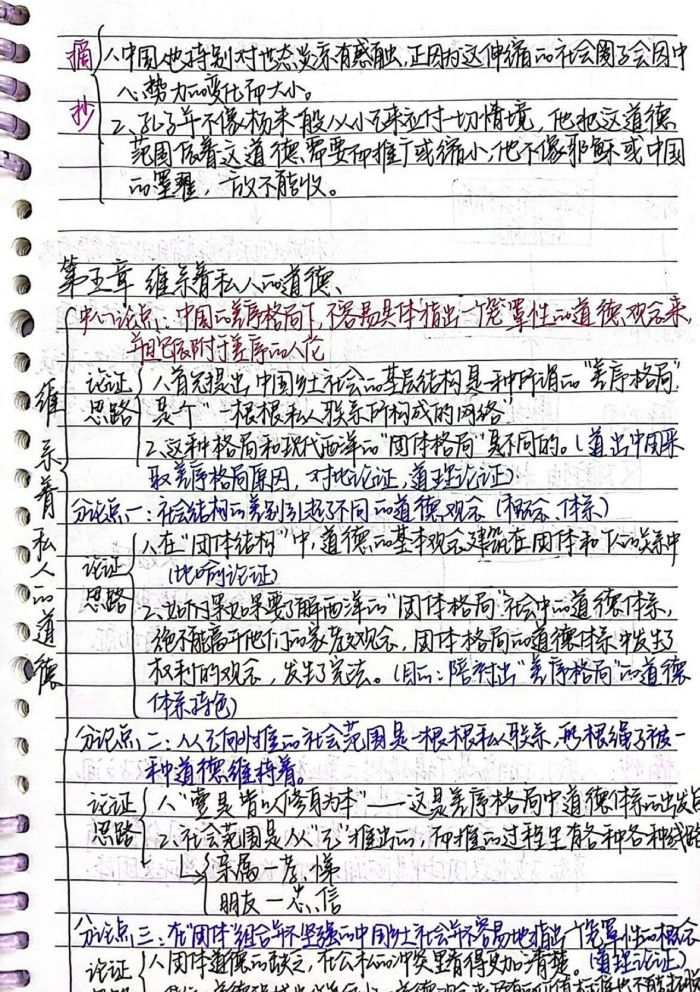 摘抄
1、中国人也特别对世态炎凉有感触,正因为这伸缩的社会圈子会因中
心势力的变化而大小。
2、孔子并不像杨朱一般以小己来应付一切情境,他把这道德
范围依着这道德需要而推广或缩小,他不像耶稣或中国
的墨翟,一放不能收。
第五章 维系着私人的道德、
维系着私人的道德
中心论点:中国的差序格局下,不容易具体指出一个笼罩性的道德观念来,
并且它依附于差序的人伦
论证思路
1、首先提出中国乡土社会的基层结构是一种所谓的“差序格局”,
是个“一根根私人联系所构成的网络”
2、这种格局和现代西洋的“团体格局”是不同的。(道出中国采
取差序格局原因,对比论证,道理论证)
分论点一:社会结构的差别引起了不同的道德观念(概念、体系)
论证思路
1、在“团体结构”中,道德的基本观念建筑在团体和个人的关系中
(比喻论证)
2、如果要了解西洋的“团体格局”社会中的道德体系,
绝不能离开他们的宗教观念,团体格局的道德体系中发生了
权利的观念,发生了宪法。(目的:陪衬出“差序格局”的道德
体系特色)
分论点二:从己向外推的社会范围是一根根私人联系,每根绳子被一
种道德维持着。
论证思路
1、“壹是皆以修身为本”——这是差序格局中道德体系的出发点
2、社会范围是从“己”推出的,而推的过程里有各种各种线路
亲属—孝、悌
朋友—忠、信
分论点三:在“团体”组合并不坚强的中国乡土社会并不容易地指出一个笼罩性的概念
论证
1、团体道德的缺乏,在公私的冲突里看得更加清楚。(道理论证)